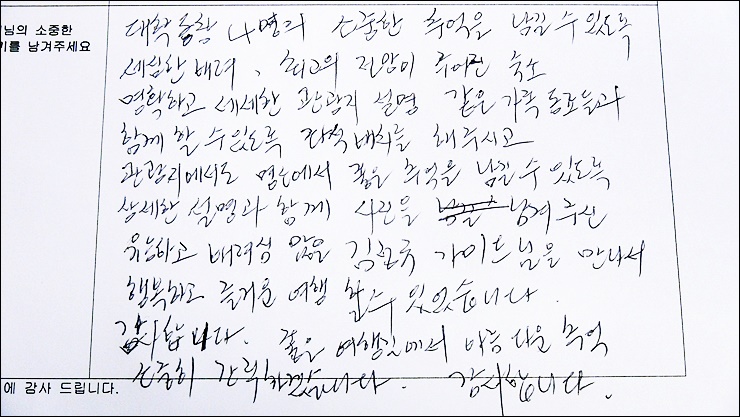 님의 소중한
기를 남겨주세요
대학동창 4명의 소중한 추억을 남길 수 있도록
세심한 배려, 최고의 전망이 주어진 숙소
명확하고 세세한 관광지 설명 같은 가족 동료들과
함께 할 수 있도록 좌석 배치를 해주시고
관광지에서도 명소에서 좋은 추억을 남길 수 있도록
상세한 설명과 함께 사진을 남겨 주신
유능하고 배려심 많은 가이드님을 만나서
행복하고 즐거운 여행 할 수 있었습니다.
감사합니다. 좋은 여행길에서 아름다운 추억
소중히 간직하겠습니다. 감사합니다.
에 감사 드립니다.